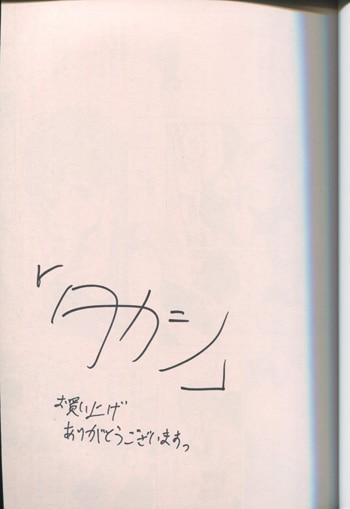 「タカシ」
お買い上げ
ありがとうございますっ